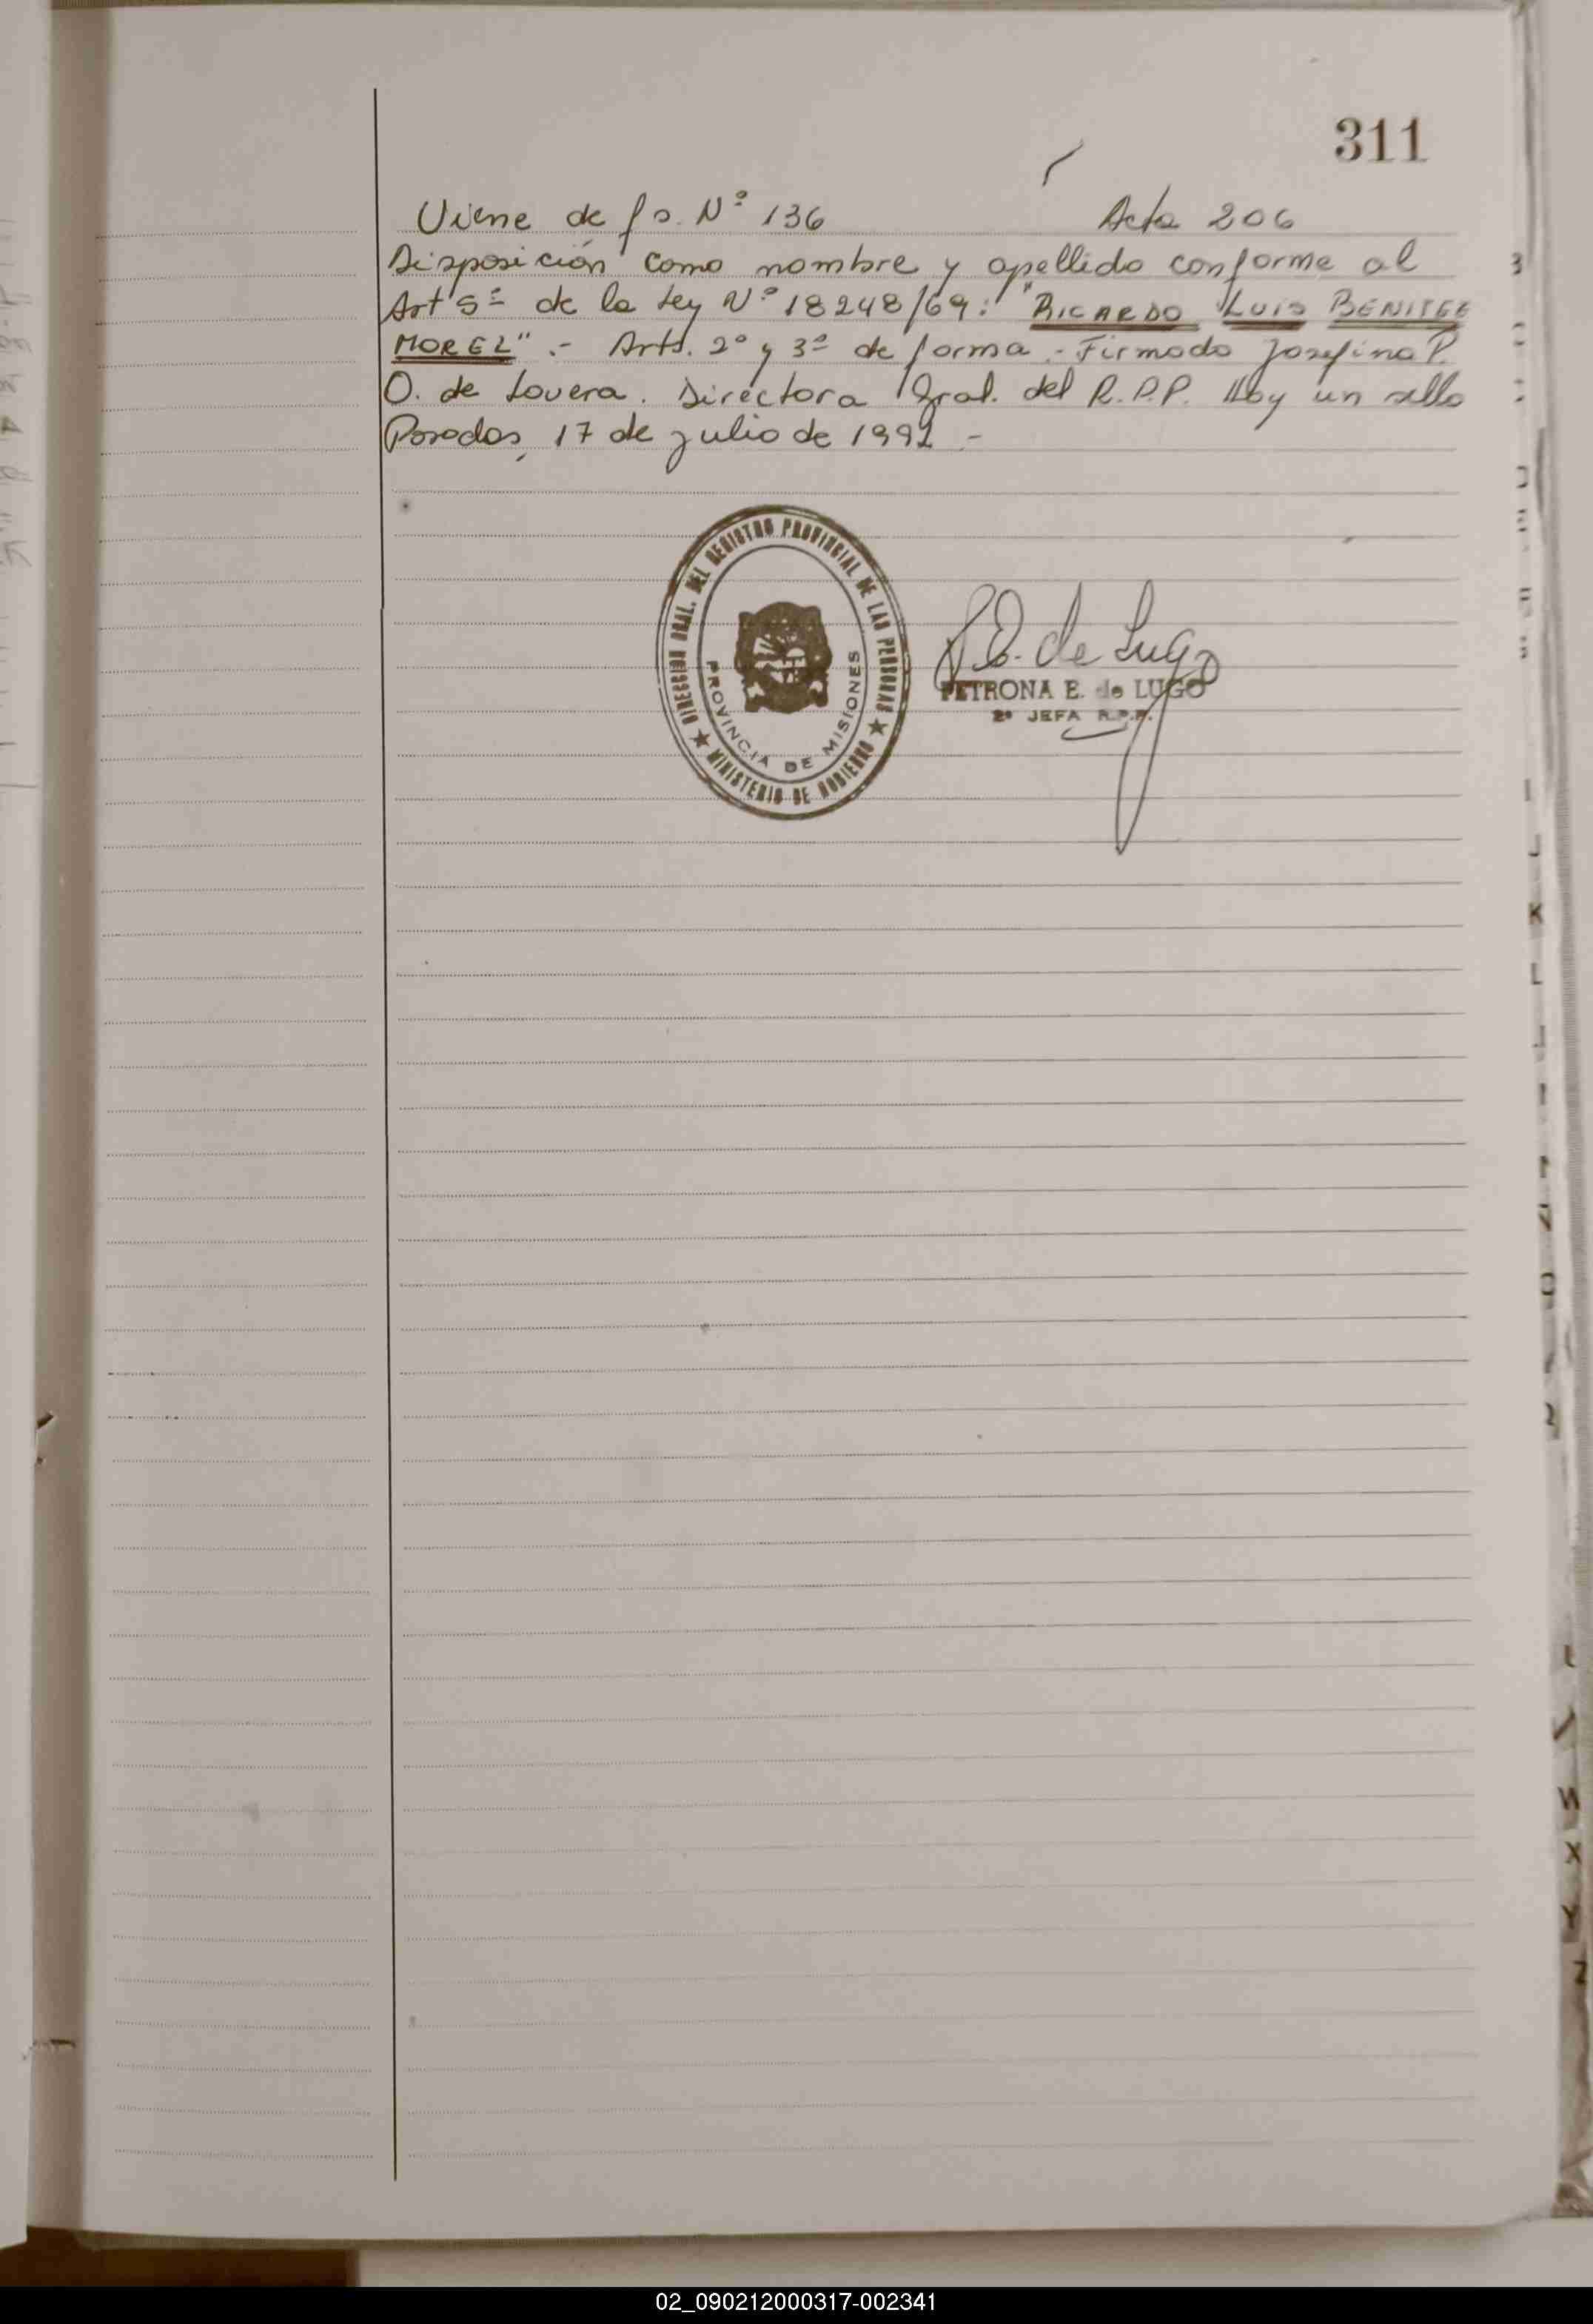 311
Viene de fs. Nº 136 Acta 206
Disposición como nombre y apellido conforme al
Art 5º de la Ley Nº 18248/69: "RICARDO LUIS BENITEZ
MOREL" .- Arts. 2º y 3º de forma .- Firmado Josefina P.
O. de Lovera. Directora Gral. del R.P.P. Hay un sello
Posadas, 17 de julio de 1992 -
DIRECCION GRAL. DEL REGISTRO PROVINCIAL DE LAS PERSONAS
★ MINISTERIO DE GOBIERNO ★
PROVINCIA DE MISIONES
P.E. de Lugo
PETRONA E. de LUGO
2ª JEFA R.P.P.
02_090212000317-002341